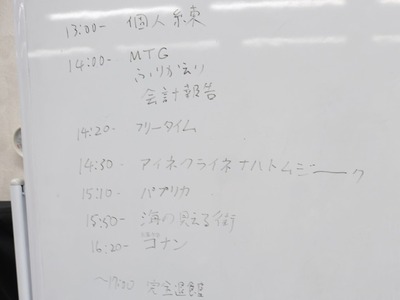 13:00- 個人練
14:00- MTG
ふりかえり
会計報告
14:20- フリータイム
14:30- アイネクライネナハトムジーク
15:10- パプリカ
15:50- 海の見える街
16:20- コナン
~17:00 完全退館